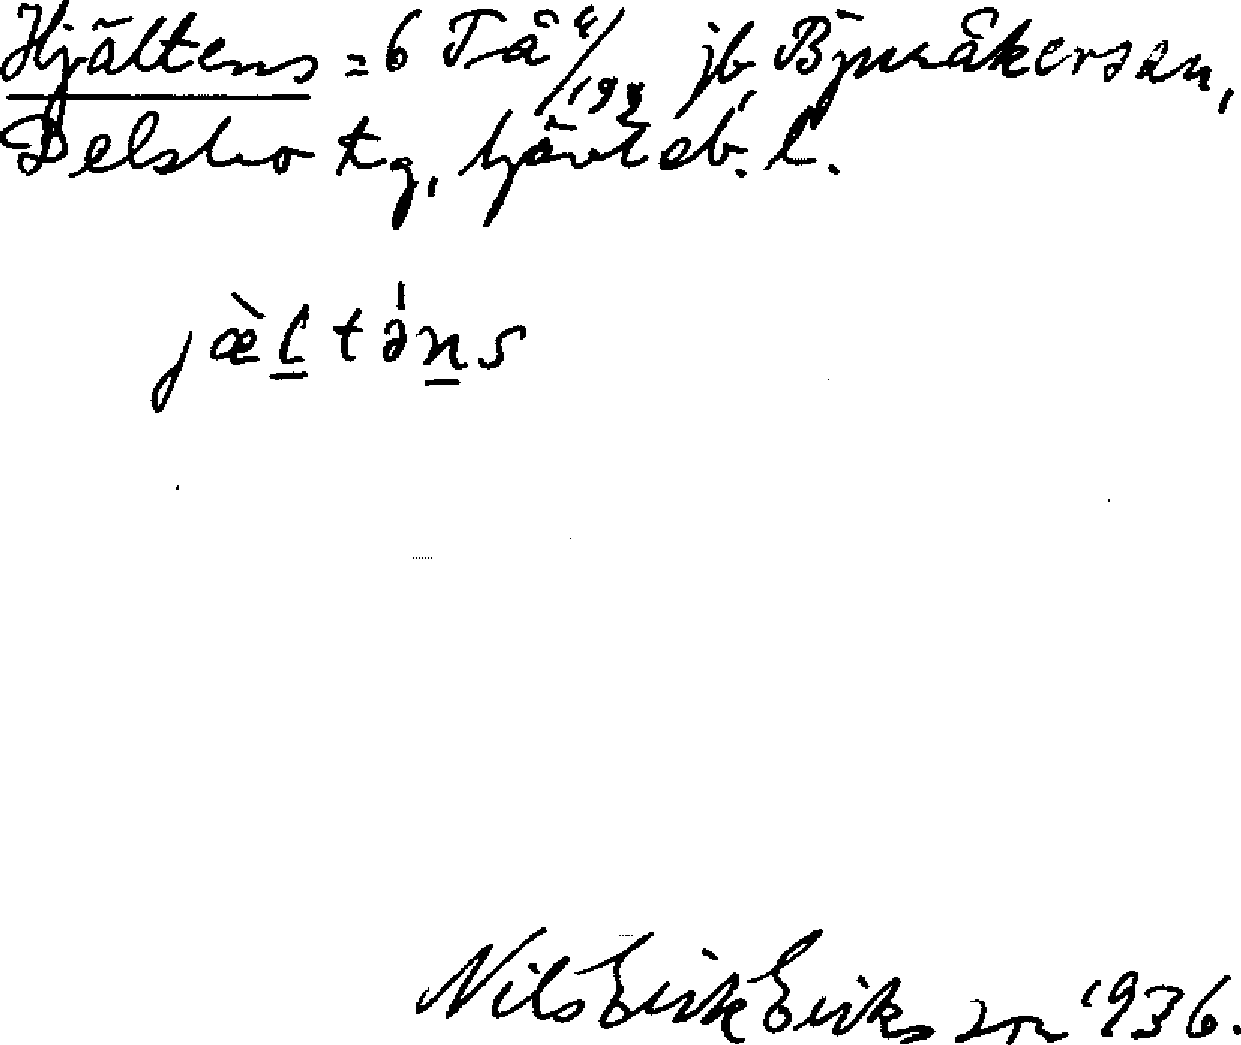 Hjältens = 6 Tå 4/194 jb, Bjuråkersån,
Delsbo tg, Gävleb. l.
jæ̀ltəns
Nils Erik Eriksson 1936.